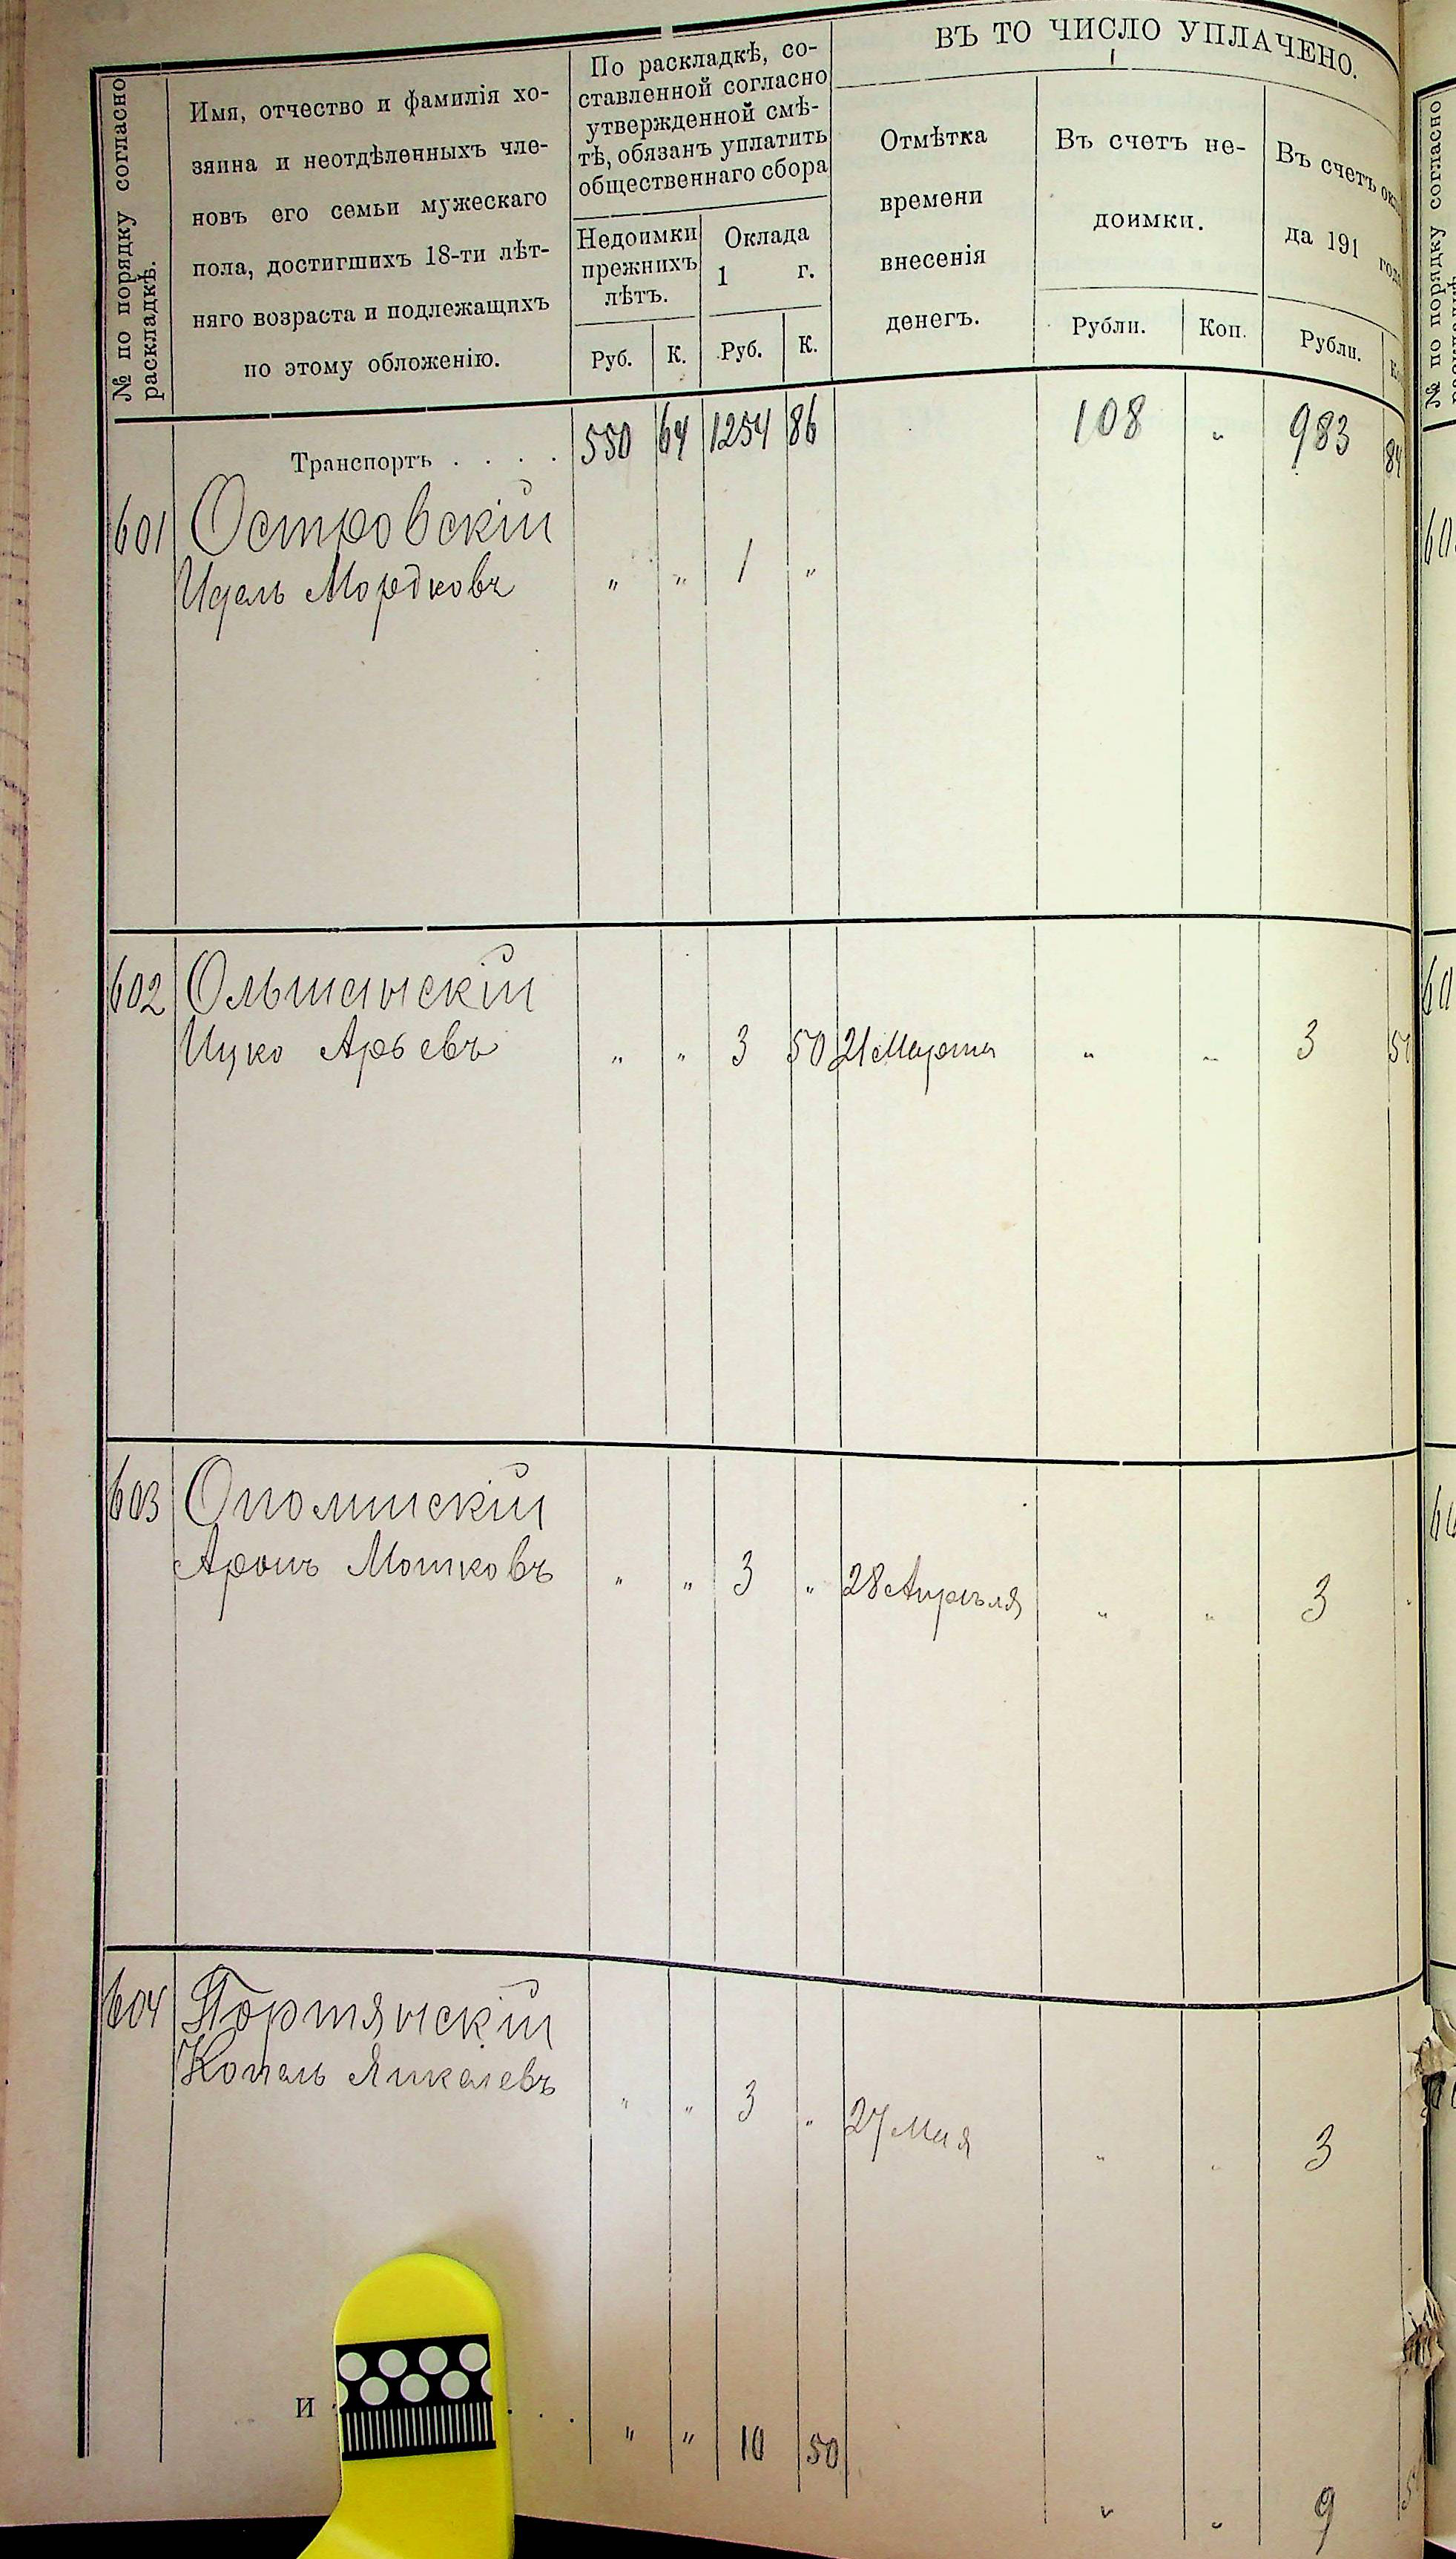 ВЪ ТО ЧИСЛО УПЛАЧЕНО.
№ по порядку согласно
раскладкѣ.
Имя, отчество и фамилія хо-
зяина и неотдѣленныхъ чле-
новъ его семьи мужескаго
пола, достигшихъ 18-ти лѣт-
няго возраста и подлежащихъ
по этому обложенію.
По раскладкѣ, со-
ставленной согласно
утвержденной смѣ-
тѣ, обязанъ уплатить
общественнаго сбора
Недоимки
прежнихъ
лѣтъ.
Оклада
1 г.
Руб. К. Руб. К.
Отмѣтка
времени
внесенія
денегъ.
Въ счетъ не-
доимки.
Рубли. Коп.
Въ счетъ
да 191 года
Рубли.
Транспортъ . . . . 550 64 1254 86 108 „ 983 84
601 Островскій
Идель Мордковъ „ „ 1 „
602 Ольшанскій
Ицко Арьевъ „ „ 3 50 21 Марта „ „ 3 50
603 Опошнскій
Аронъ Мошковъ „ „ 3 „ 28 Апрѣля „ „ 3
604 Портянскій
Копель Янкелевъ „ „ 3 „ 27 Мая „ „ 3
И . . . „ „ 10 50 „ „ 9
№ по порядку согласно